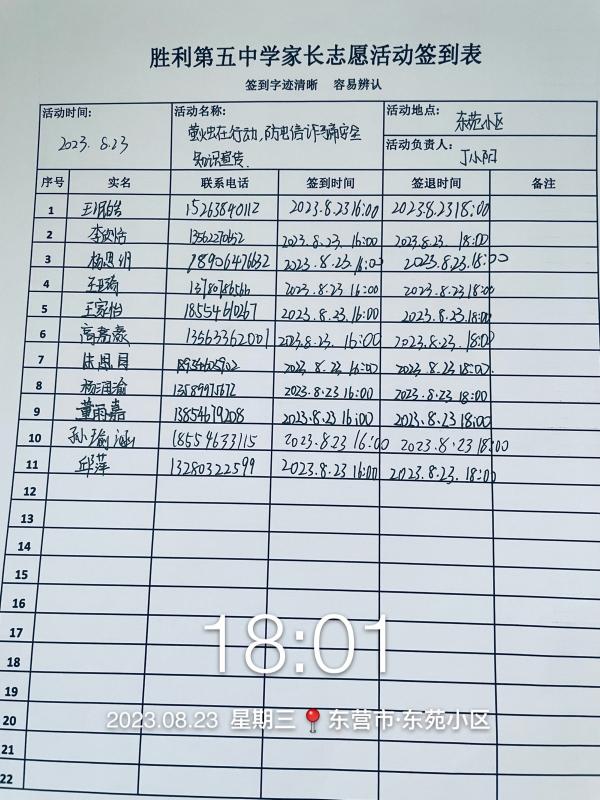 胜利第五中学家长志愿活动签到表
签到字迹清晰 容易辨认
活动时间: 2023.8.23
活动名称: 萤火虫在行动,防电信诈骗安全
知识宣传.
活动地点: 东苑小区
活动负责人: 丁小阳
序号 实名 联系电话 签到时间 签退时间 备注
1 15263840112 2023.8.23 16:00 2023.8.23 18:00
2 13562270652 2023.8.23. 16:00 2023.8.23. 18:00
3 18906476632 2023.8.23. 16:00 2023.8.23.18:00
4 13780786566 2023.8.23 16:00 2023.8.23 18:00
5 王家怡 18554610267 2023.8.23 16:00 2023.8.23.18:00
6 13563362001 2023.8.23. 16:00 2023.8.23. 18:00
7 2023.8.23 16:00 2023.8.23 18:00.
8 杨润渝 13589975672 2023.8.23 16:00 2023.8.23 18:00
9 董雨嘉 13854679208 2023.8.23 16:00 2023.8.23 18:00
10 孙瑜涵 18554633115 2023.8.23 16:00 2023.8.23 18:00
11 邱萍 13280322599 2023.8.23 16:00 2023.8.23. 18:00
12
13
14
15
16
17
18
19
20
21
22
18:01
2023.08.23 星期三 东营市·东苑小区